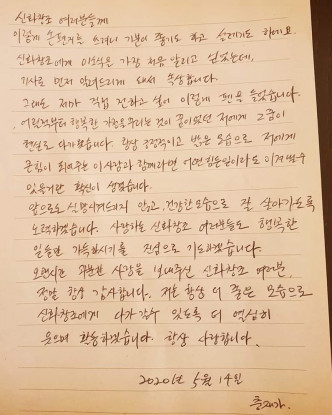 신화창조 여러분들께
이렇게 손편지를 쓰려니 기분이 좋기도 하고 설레기도 하네요.
신화창조에게 이 소식을 가장 처음 알리고 싶었는데,
기사로 먼저 알려드리게 돼서 속상합니다.
그래도 제가 직접 전하고 싶어 이렇게 펜을 들었습니다.
어렸을때부터 행복한 가정을 꾸리는것이 꿈이었던 저에게 그 꿈이
현실로 다가왔습니다. 항상 긍정적이고 밝은 모습으로 저에게
큰힘이 되어주는 이 사람과 함께라면 어떤 힘든일이라도 이겨낼수
있을거란 확신이 생겼습니다.
앞으로도 실망시켜드리지 않고, 건강한 모습으로 잘 살아가도록
노력하겠습니다. 사랑하는 신화창조 여러분들도 행복한
일들만 가득하시기를 진심으로 기도하겠습니다.
오랜시간 과분한 사랑을 보내주신 신화창조 여러분.
정말 항상 감사합니다. 저는 항상 더 좋은 모습으로
신화창조에게 다가갈수 있도록 더 열심히
웃으며 활동하겠습니다. 항상 사랑합니다.
2020년 5월 14일
충재가.